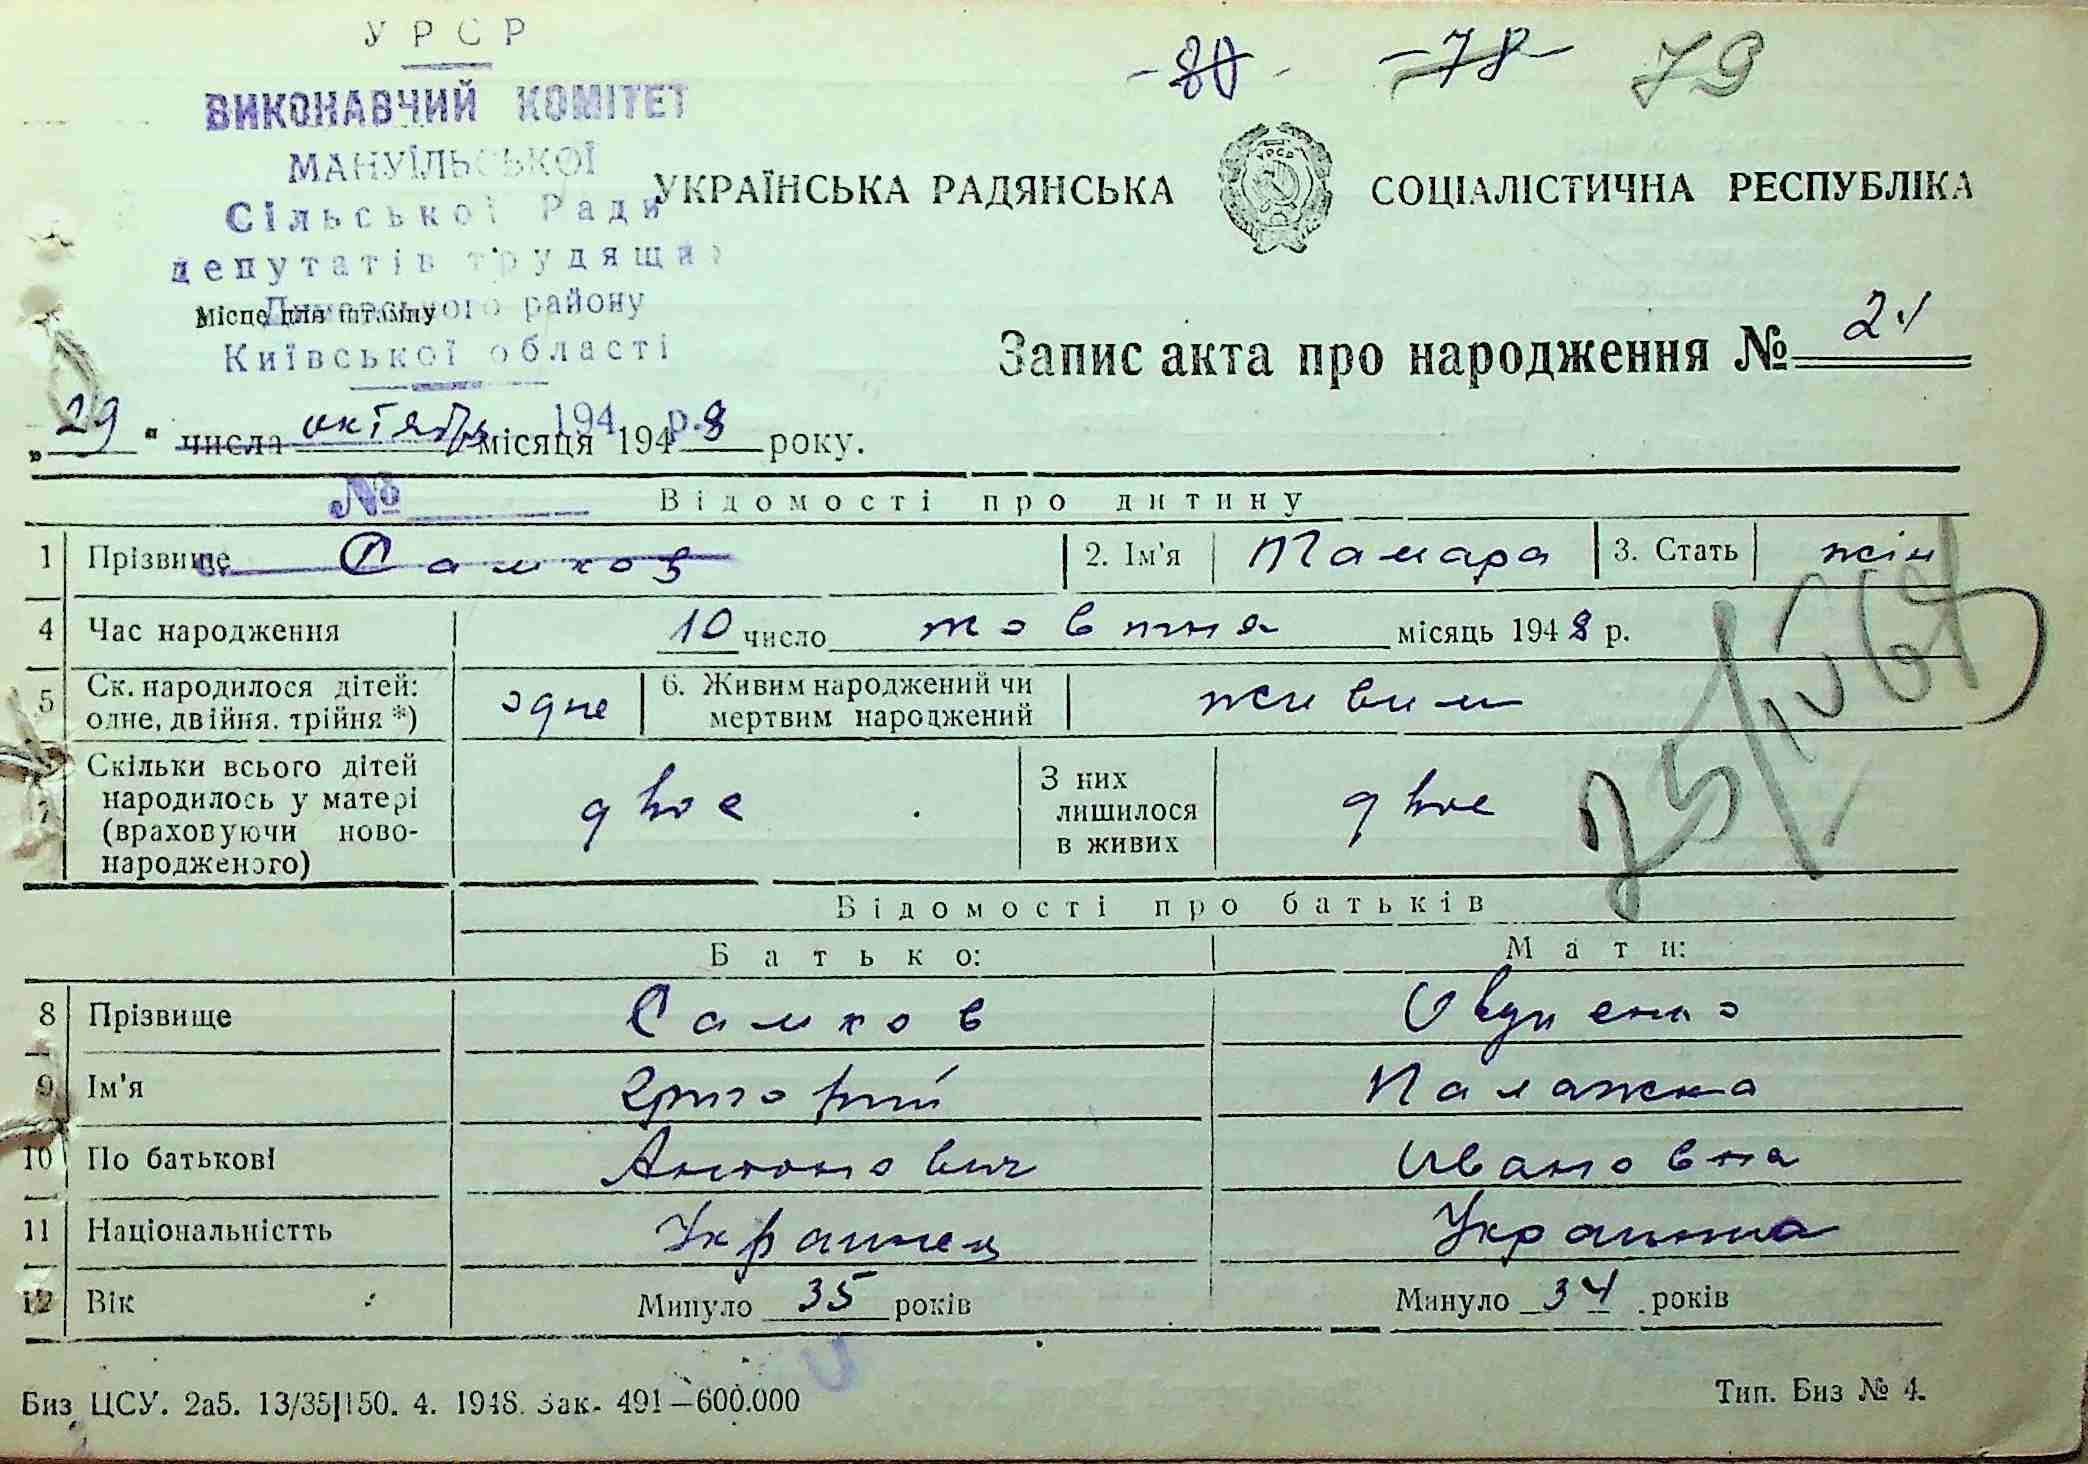 УРСР
-80- -78- 79
ВИКОНАВЧИЙ КОМІТЕТ
МАНУЇЛЬСЬКОЇ
Сільської Ради
УКРАЇНСЬКА РАДЯНСЬКА СОЦІАЛІСТИЧНА РЕСПУБЛІКА
УРСР
депутатів трудящих
району
Місце для штампу
Київської області
Запис акта про народження № 21
194 р.
„29" числа октября місяця 1948 року.
№
Відомості про дитину
1 Прізвище Самков 2. Ім'я Тамара 3. Стать жін
4 Час народження 10 число жовтня місяць 1948 р.
5 Ск. народилося дітей: одне, двійня. трійня *) одне 6. Живим народжений чи мертвим народжений живим
7 Скільки всього дітей народилось у матері (враховуючи ново-народженого) двое З них лишилося в живих двое
Відомості про батьків
Батько: Мати:
8 Прізвище Самков
9 Ім'я Григорий Палажка
10 По батькові Антонович Ивановна
11 Національністть Украинец Украинка
12 Вік Минуло 35 років Минуло 34 років
Биз ЦСУ. 2а5. 13/35|150. 4. 1948. Зак. 491—600.000 Тип. Биз № 4.